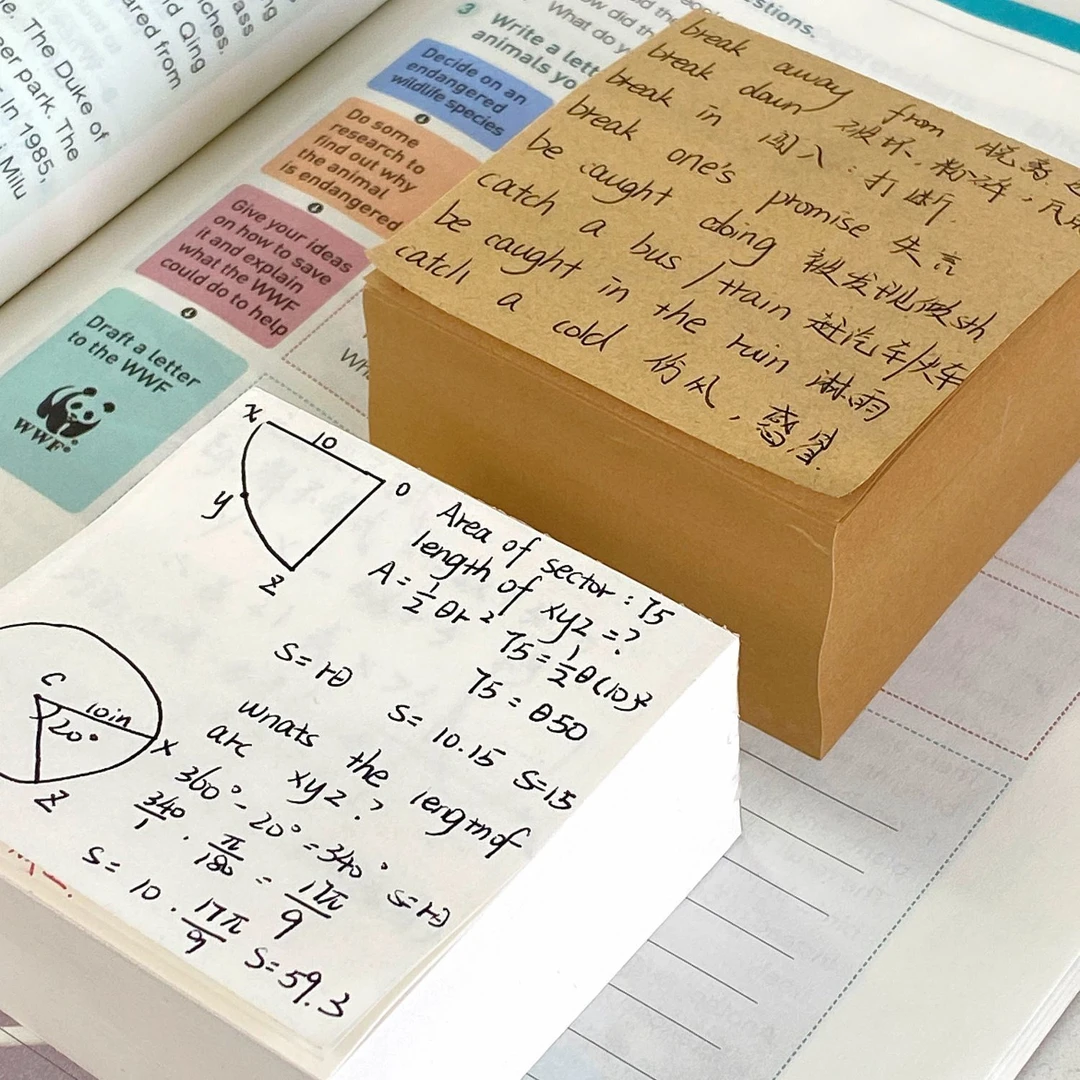 e. The Duke of
eer park. The
In 1985,
Milu
ng
ass
ches.
d Qing
ared from
stions.
3 Write a lett
animals yo
What do y
ow did th
Decide on an
endangered
wildlife species
Do some
research to
find out why
the animal
is endangered
Give your ideas
on how to save
it and explain
what the WWF
could do to help
Draft a letter
to the WWF
WWF
break away from 脱离
break down 破坏,粉碎,
break in 闯入:打断
break one's promise 失言
be caught doing 被发现做sth
catch a bus/train 赶汽车/火车
be caught in the rain 淋雨
catch a cold 伤风,感冒
x 10 0
y
z
Area of sector: 75
length of xyz =?
A= 1/2 θr²
75=1/2θ(10)²
75=θ50
s=rθ s= 10.15 s=15
wnats the lengthof
arc xyz?
C
10in
20°
x
z
360°-20°=340° s=rθ
340/1 · π/180 = 17π/9
s= 10 · 17π/9 s=59.3